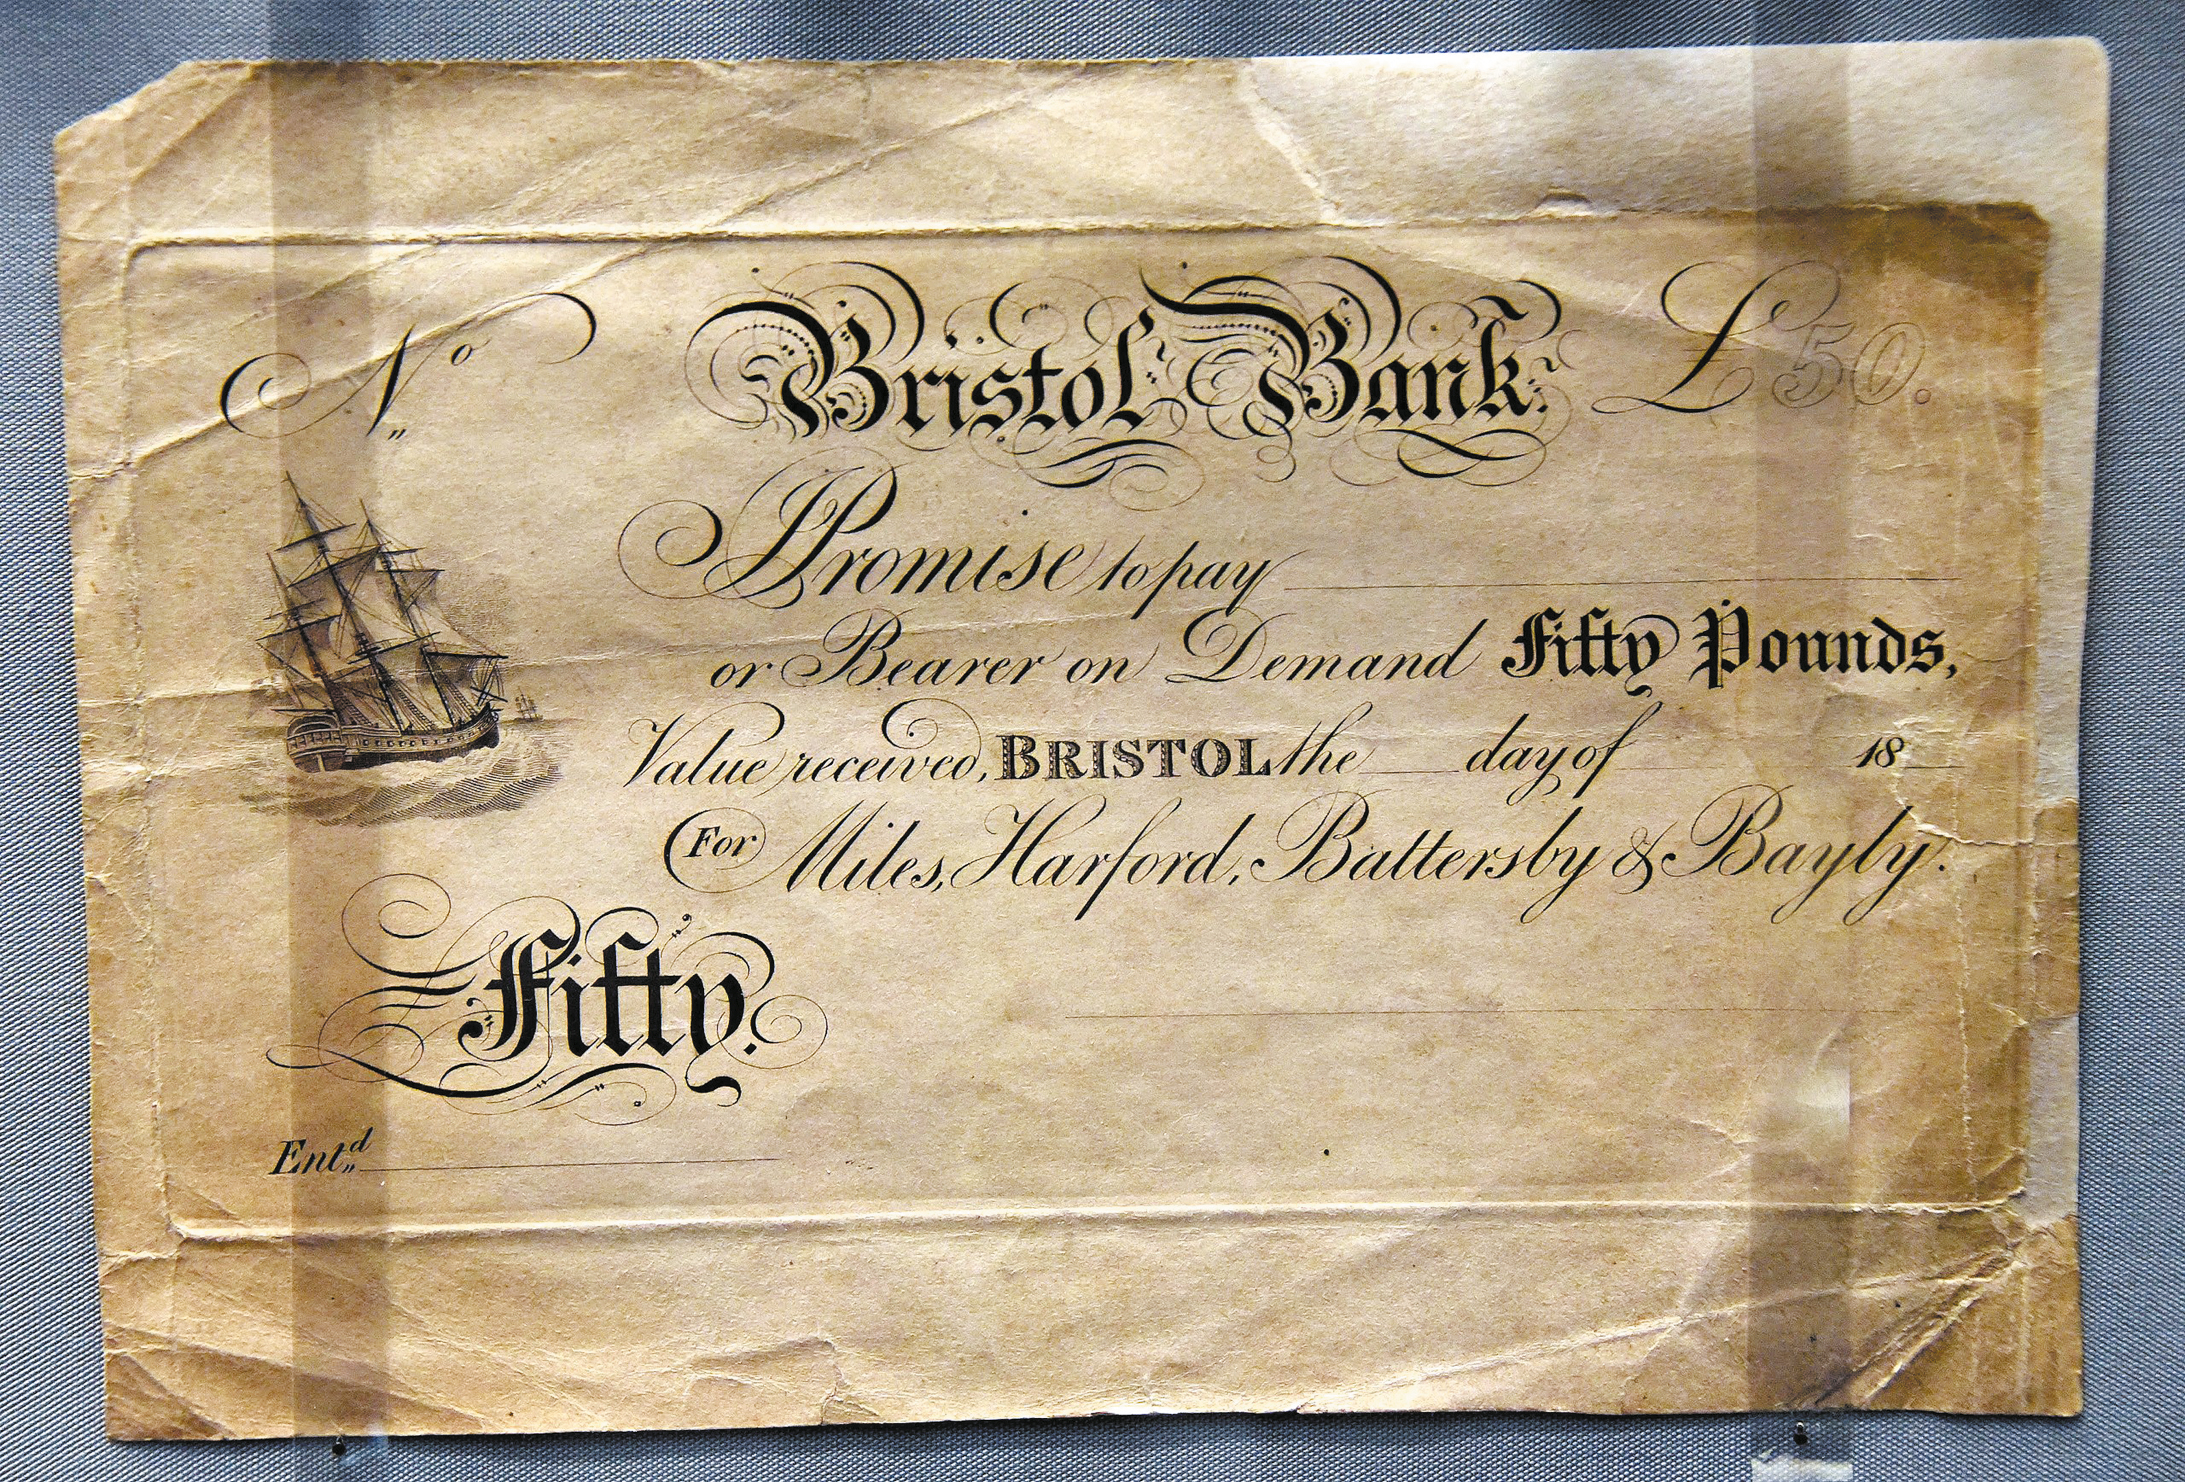 No Bristol Bank. £50.
I Promise to pay
or Bearer on Demand Fifty Pounds,
Value received, BRISTOL the day of 18
For Miles, Harford, Battersby & Bayly.
Fifty.
Entd